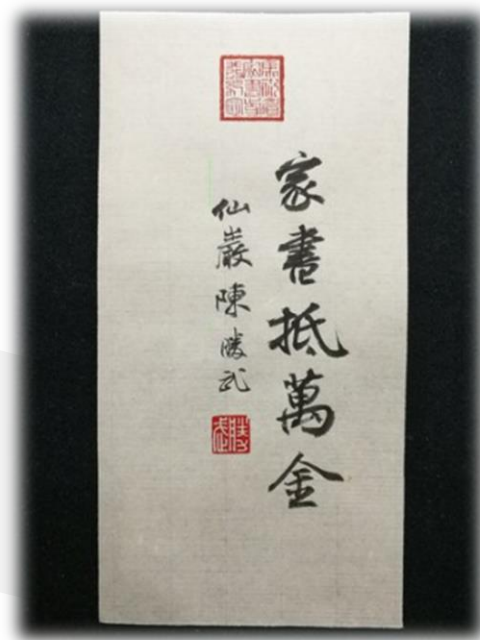 家書抵萬金
仙巖陳勝武
勝武